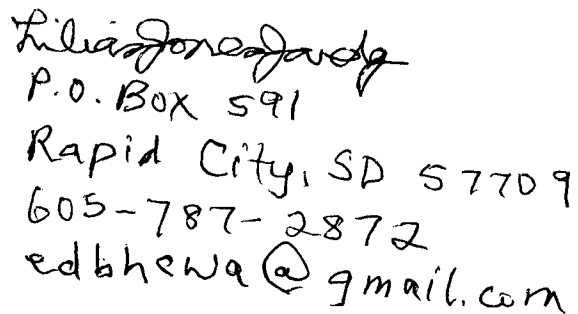 Lilias Jones Jarding
P.O. Box 591
Rapid City, SD 57709
605-787-2872
edbhewa@gmail.com